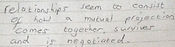 relationships seem to consist
of how a mutual projection
comes together, survives
and is negotiated.